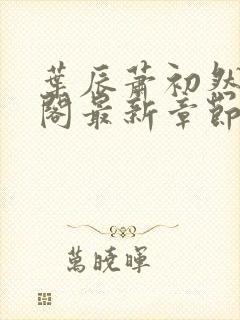 葉辰蕭初然
閣最新章節
萬曉暉